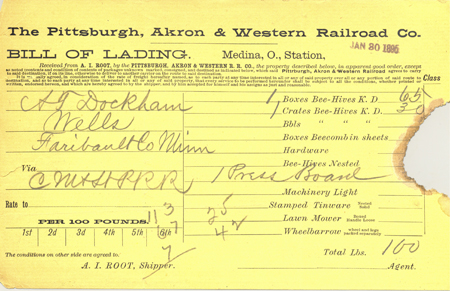 The Pittsburgh, Akron & Western Railroad Co.
JAN 30 1896
BILL OF LADING.
Medina, O., Station,
Received from A. I. ROOT, by the PITTSBURGH, AKRON & WESTERN R. R. CO., the property described below, in apparent good order, except
as noted (contents and condition of contents of packages unknown) marked, consigned, and destined as indicated below, which said Pittsburgh, Akron & Western Railroad agrees to carry
to said destination, if on its line, otherwise to deliver to another carrier on the route to said destination.
Class
A J Dockham
Wells
Faribault Co Minn
Via
C M & St P R R
Rate to
PER 100 POUNDS.
1st 2d 3d 4th 5th 6th
The conditions on other side are agreed to.
A. I. ROOT, Shipper.
1 Boxes Bee-Hives K. D. 65
1 Crates Bee-Hives K. D. 30
Bbls " " "
Boxes Beecomb in sheets
Hardware
Bee-Hives Nested
1 Press Board
Machinery Light
Stamped Tinware Nested Solid
Lawn Mower Boxed Handle Loose
Wheelbarrow wheel and legs packed separately
Total Lbs. 100
Agent.
11 3
7
7
25
42